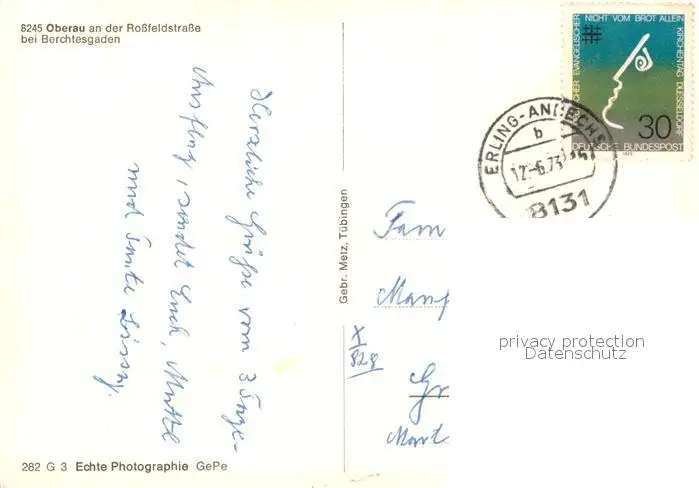 8245 Oberau an der Roßfeldstraße
bei Berchtesgaden
Herzliche Grüße vom 3 Tage-
Ausflug, sendet Euch, Mutti
und Tante Lissy.
282 G 3 Echte Photographie GePe
Gebr. Metz, Tübingen
DEUTSCHER EVANGELISCHER KIRCHENTAG DUESSELDORF
NICHT VOM BROT ALLEIN
30
DEUTSCHE BUNDESPOST
ERLING-ANDECHS
b
12.-6.73
8131
Fam
X
828
Gr
privacy protection
Datenschutz